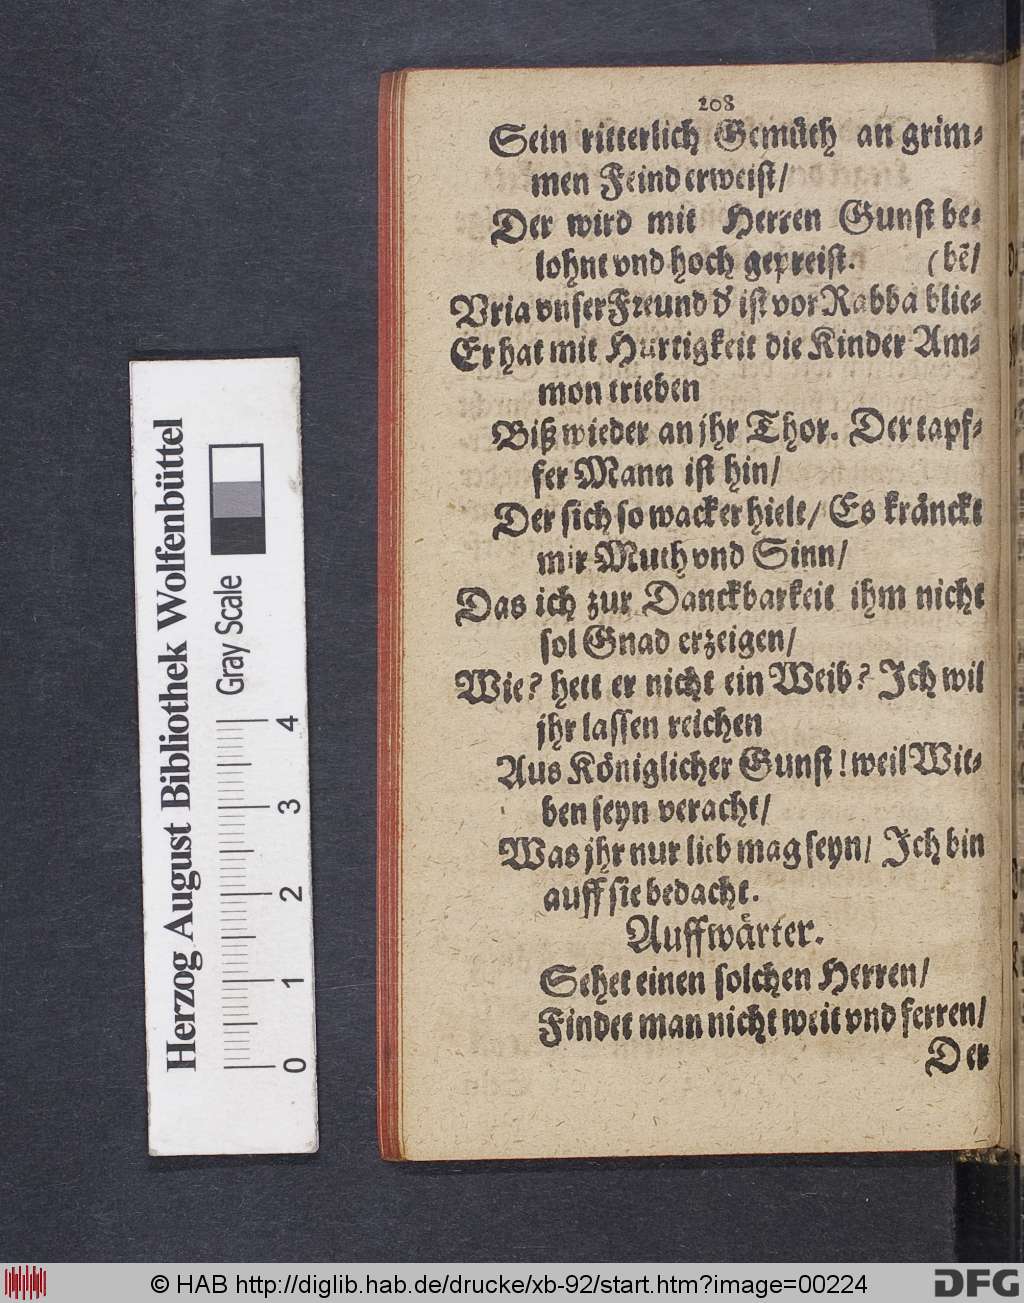 208
Sein ritterlich Gemüth an grim-
men Feind erweist/
Der wird mit Herren Gunst be-
lohnt vnd hoch gepreist. (bẽ/
Vria vnser Freund d' ist vor Rabba blie-
Er hat mit Hurtigkeit die Kinder Am-
mon trieben
Biß wieder an jhr Thor. Der tapf-
fer Mann ist hin/
Der sich so wacker hielt/ Es kränckt
mir Muth vnd Sinn/
Das ich zur Danckbarkeit ihm nicht
sol Gnad erzeigen/
Wie? hett er nicht ein Weib? Ich wil
jhr lassen reichen
Aus Königlicher Gunst! weil Wit-
ben seyn veracht/
Was jhr nur lieb mag seyn/ Ich bin
auff sie bedacht.
Auffwärter.
Sehet einen solchen Herren/
Findet man nicht weit vnd ferren/
Der
Herzog August Bibliothek Wolfenbüttel
Gray Scale
0 1 2 3 4
© HAB http://diglib.hab.de/drucke/xb-92/start.htm?image=00224
DFG